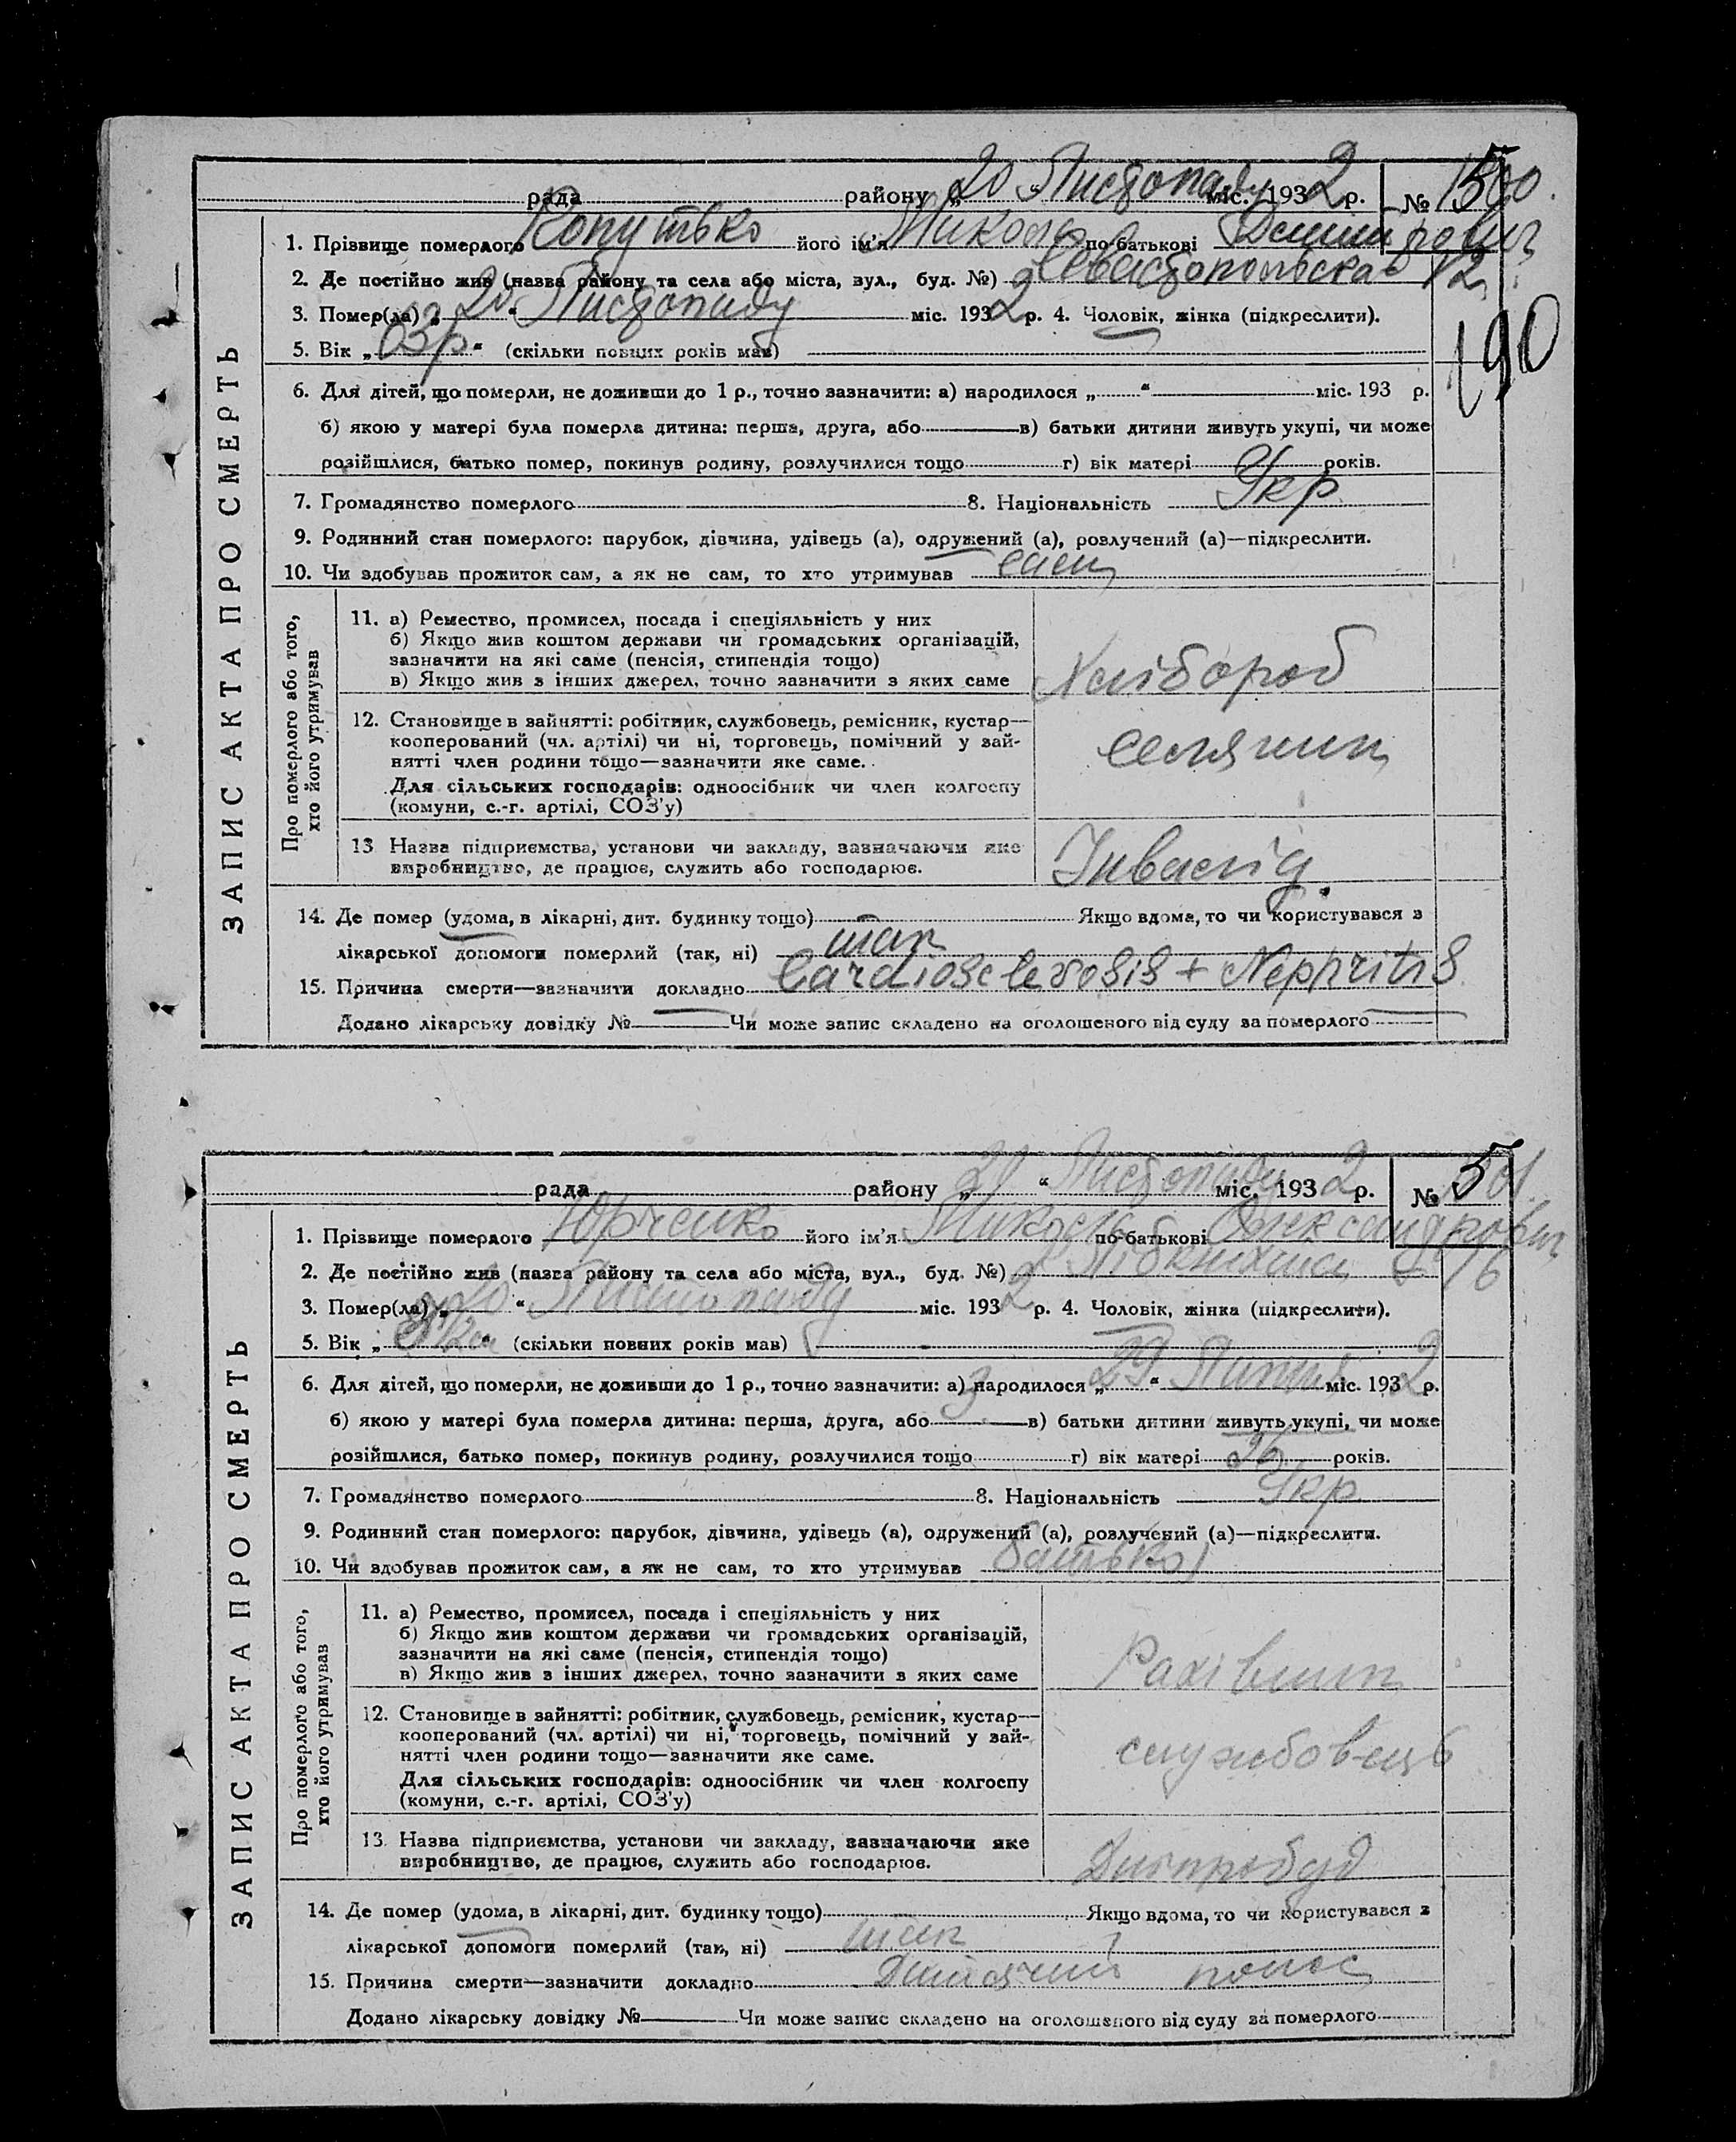 рада району „20 “ Листопаду міс. 1932 р. №
1. Прізвище померлого Копутько його ім'я Микола по батькові
2. Де постійно жив (назва району та села або міста, вул., буд. №) Севастопольская 12
3. Помер(ла) „20 “ Листопаду міс. 1932 р. 4. Чоловік, жінка (підкреслити).
190
5. Вік „63р“ (скільки повних років мав)
6. Для дітей, що померли, не доживши до 1 р., точно зазначити: а) народилося „ “ міс. 193 р.
б) якою у матері була померла дитина: перша, друга, або в) батьки дитини живуть укупі, чи може
розійшлися, батько помер, покинув родину, розлучилися тощо г) вік матері років.
7. Громадянство померлого 8. Національність Укр
9. Родинний стан померлого: парубок, дівчина, удівець (а), одружений (а), розлучений (а)—підкреслити.
10. Чи здобував прожиток сам, а як не сам, то хто утримував сам
ЗАПИС АКТА ПРО СМЕРТЬ
Про померлого або того,
хто його утримував
11. а) Ремество, промисел, посада і спеціяльність у них
б) Якщо жив коштом держави чи громадських організацій,
зазначити на які саме (пенсія, стипендія тощо)
в) Якщо жив з інших джерел, точно зазначити з яких саме
Хлібороб
12. Становище в зайнятті: робітник, службовець, ремісник, кустар—
кооперований (чл. артілі) чи ні, торговець, помічний у зай-
нятті член родини тощо—зазначити яке саме.
Для сільських господарів: одноосібник чи член колгоспу
(комуни, с.-г. артілі, СОЗ'у)
селянин
13 Назва підприємства, установи чи закладу, зазначаючи яке
виробництво, де працює, служить або господарює.
Інвалід.
14. Де помер (удома, в лікарні, дит. будинку тощо) Якщо вдома, то чи користувався з
лікарської допомоги померлий (так, ні) так
15. Причина смерти—зазначити докладно Cardiosclerosis + Nephritis
Додано лікарську довідку № Чи може запис складено на оголошеного від суду за померлого
рада району „20 “ Листопаду міс. 1932 р. № 501
1. Прізвище померлого Юрченко його ім'я Микола по батькові Олександрович
2. Де постійно жив (назва району та села або міста, вул., буд. №)
3. Помер(ла) „20 “ Листопаду міс. 1932 р. 4. Чоловік, жінка (підкреслити).
5. Вік „ “ (скільки повних років мав)
6. Для дітей, що померли, не доживши до 1 р., точно зазначити: а) народилося „29“ Липня міс. 1932 р.
б) якою у матері була померла дитина: перша, друга, або 3 в) батьки дитини живуть укупі, чи може
розійшлися, батько помер, покинув родину, розлучилися тощо г) вік матері 26 років.
7. Громадянство померлого 8. Національність Укр
9. Родинний стан померлого: парубок, дівчина, удівець (а), одружений (а), розлучений (а)—підкреслити.
10. Чи здобував прожиток сам, а як не сам, то хто утримував батько
ЗАПИС АКТА ПРО СМЕРТЬ
Про померлого або того,
хто його утримував
11. а) Ремество, промисел, посада і спеціяльність у них
б) Якщо жив коштом держави чи громадських організацій,
зазначити на які саме (пенсія, стипендія тощо)
в) Якщо жив з інших джерел, точно зазначити з яких саме
Рахівник
12. Становище в зайнятті: робітник, службовець, ремісник, кустар—
кооперований (чл. артілі) чи ні, торговець, помічний у зай-
нятті член родини тощо—зазначити яке саме.
Для сільських господарів: одноосібник чи член колгоспу
(комуни, с.-г. артілі, СОЗ'у)
службовець
13. Назва підприємства, установи чи закладу, зазначаючи яке
виробництво, де працює, служить або господарює.
Дніпробуд
14. Де помер (удома, в лікарні, дит. будинку тощо) Якщо вдома, то чи користувався з
лікарської допомоги померлий (так, ні) так
15. Причина смерти—зазначити докладно Дитячий понос
Додано лікарську довідку № Чи може запис складено на оголошеного від суду за померлого